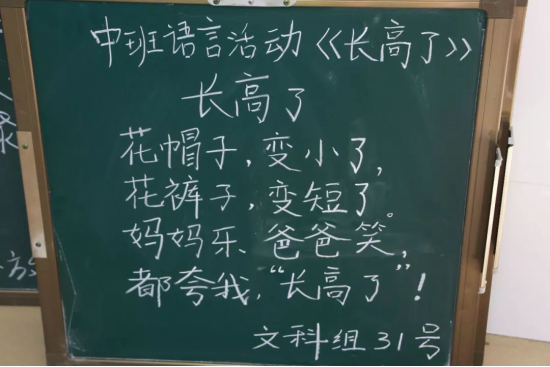 中班语言活动《长高了》
长高了
花帽子,变小了,
花裤子,变短了。
妈妈乐 爸爸笑,
都夸我,“长高了”!
文科组31号